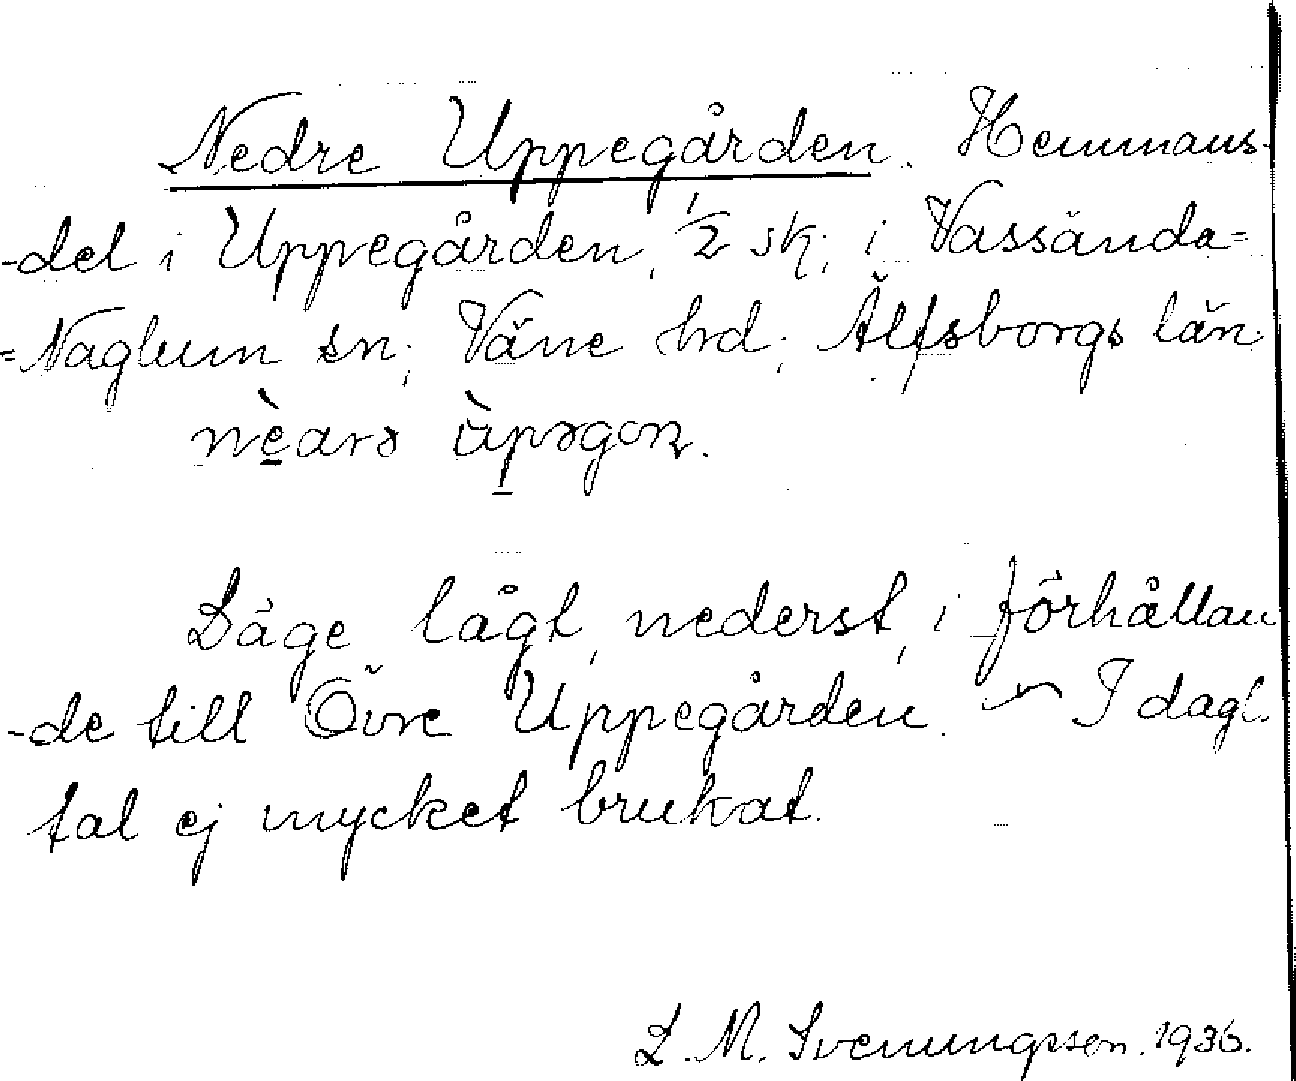 Nedre Uppegården. Hemmans-
-del i Uppegården, 1/2 sk; i Vassända=
=Naglum sn; Väne hd; Älfsborgs län.
nèdrə ùpəgoɳ.
Läge lågt, nederst, i förhållan
-de till Övre Uppegården. ~ I dagl.
tal ej mycket brukat.
L. M. Svenungsson. 1936.